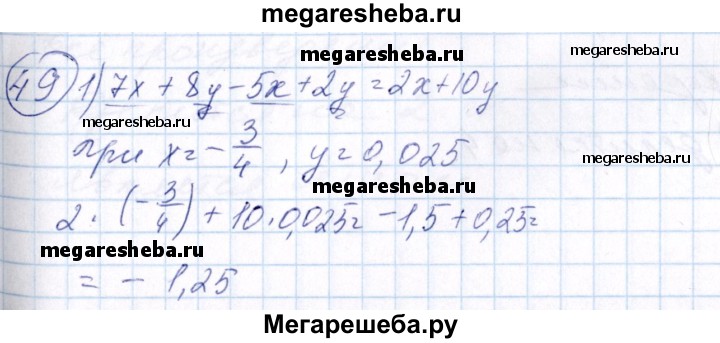 megaresheba.ru
megaresheba.ru megaresheba.ru
49 1) 7x + 8y - 5x + 2y = 2x + 10y
megaresheba.ru
при x = - 3/4, y = 0,025
megaresheba.ru
2 · (- 3/4) + 10 · 0,025 = - 1,5 + 0,25 =
megaresheba.ru megaresheba.ru
= - 1,25
Мегарешеба.ру